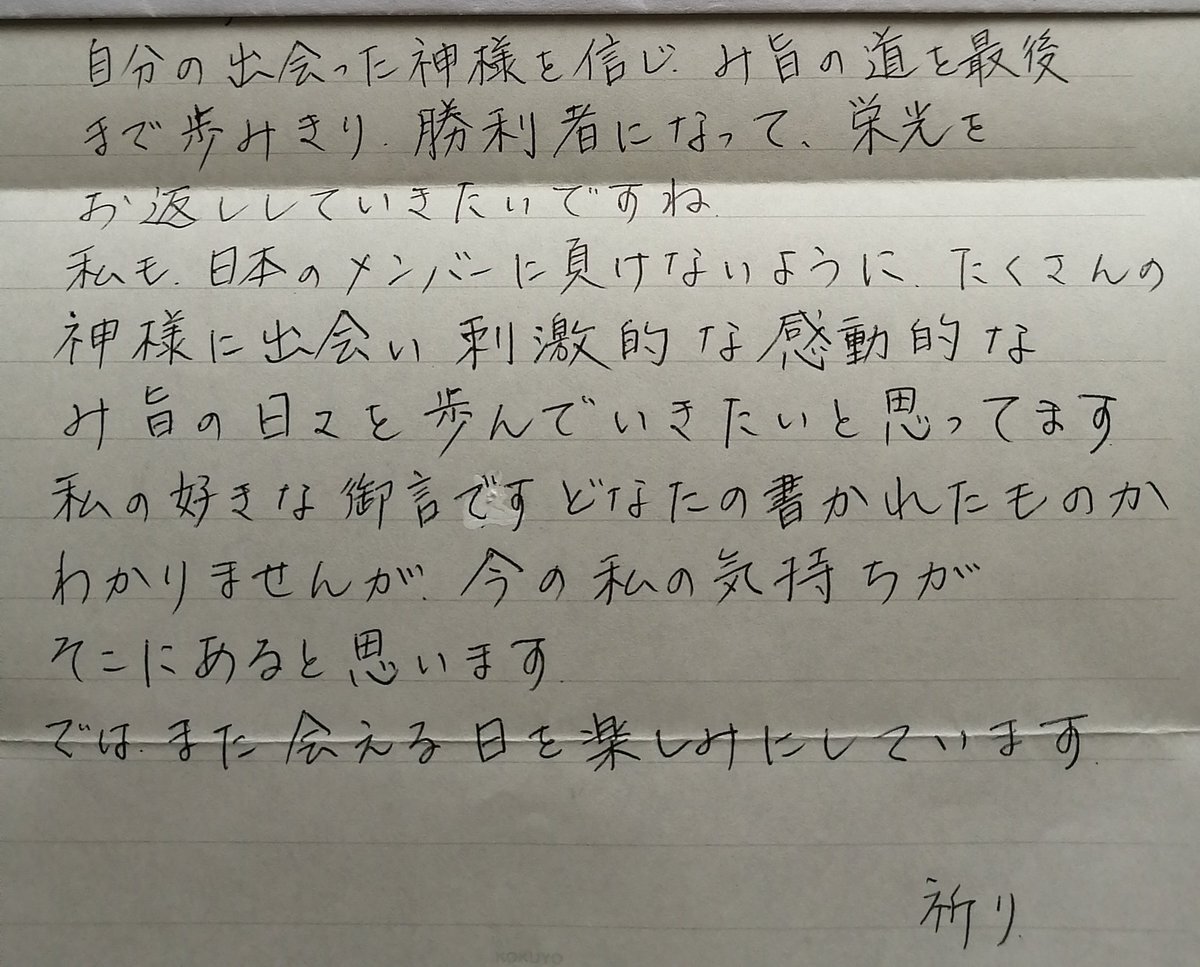 自分の出会った神様を信じ、み旨の道を最後
まで歩みきり、勝利者になって、栄光を
お返ししていきたいですね。
私も、日本のメンバーに負けないように、たくさんの
神様に出会い 刺激的な感動的な
み旨の日々を歩んでいきたいと思ってます
私の好きな御言です どなたの書かれたものか
わかりませんが、今の私の気持ちが
そこにあると思います。
では、また会える日を楽しみにしています。
祈り
KOKUYO